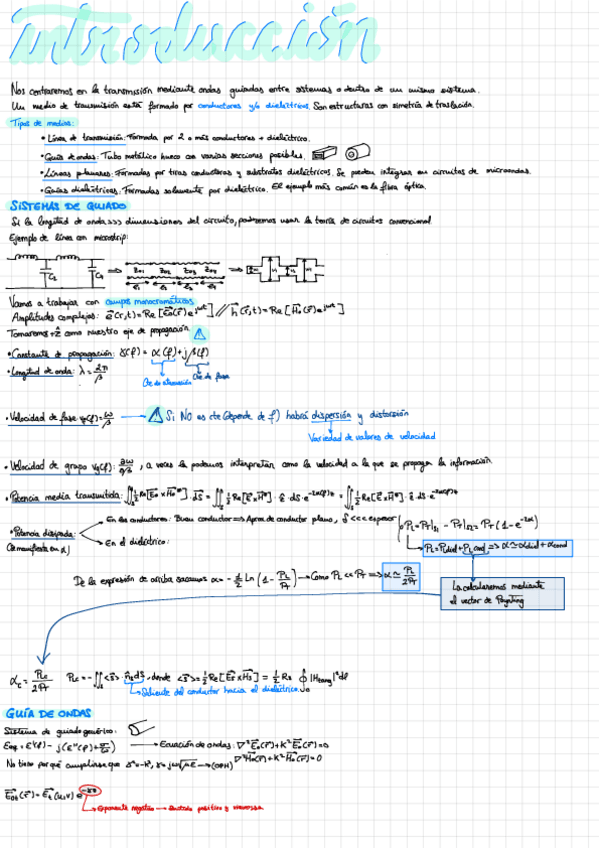 Introducción
Nos centraremos en la transmisión mediante ondas guiadas entre sistemas o dentro de un mismo sistema.
Un medio de transmisión está formado por conductores y/o dieléctricos. Son estructuras con simetría de traslación.
Tipos de medios:
• Línea de transmisión: Formada por 2 o más conductores + dieléctrico.
• Guía de ondas: Tubo metálico hueco con varias secciones posibles.
• Líneas planares: Formadas por tiras conductoras y substratos dieléctricos. Se pueden integrar en circuitos de microondas.
• Guías dieléctricas: Formadas solamente por dieléctrico. El ejemplo más común es la fibra óptica.
SISTEMAS DE GUIADO
Si la longitud de onda >>> dimensiones del circuito, podremos usar la teoría de circuitos convencional
Ejemplo de línea con microstrip:
Vamos a trabajar con campos monocromáticos
Amplitudes complejas:
Tomaremos +ẑ como nuestro eje de propagación
• Constante de propagación: γ(f) = α(f) + jβ(f)
• Longitud de onda: λ = 2π/β
Cte de atenuación
Cte de fase
• Velocidad de fase vp(f) = ω/β → Si NO es cte (depende de f) habrá dispersión y distorsión
Variedad de valores de velocidad
• Velocidad de grupo vg(f): ∂ω/∂β, a veces la podemos interpretar como la velocidad a la que se propaga la información
• Potencia media transmitida:
• Potencia disipada:
(se manifiesta en α)
En los conductores: Buen conductor => Aprox de conductor plano, δ <<< espesor
En el dieléctrico:
PL = PLdiel + PLcond => α ≃ αdiel + αcond
De la expresión de arriba sacamos α = -1/2 Ln (1 - PL/PT) → Como PL << PT => α ≃ PL/2PT
La calcularemos mediante
el vector de Poynting
Saliente del conductor hacia el dieléctrico.
GUÍA DE ONDAS
Sistema de guiado genérico:
→ Ecuación de ondas:
No tiene por qué cumplirse que
Exponente negativo → Sentido positivo y viceversa